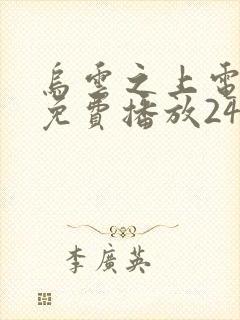 烏雲之上電
免費播放24
李廣英